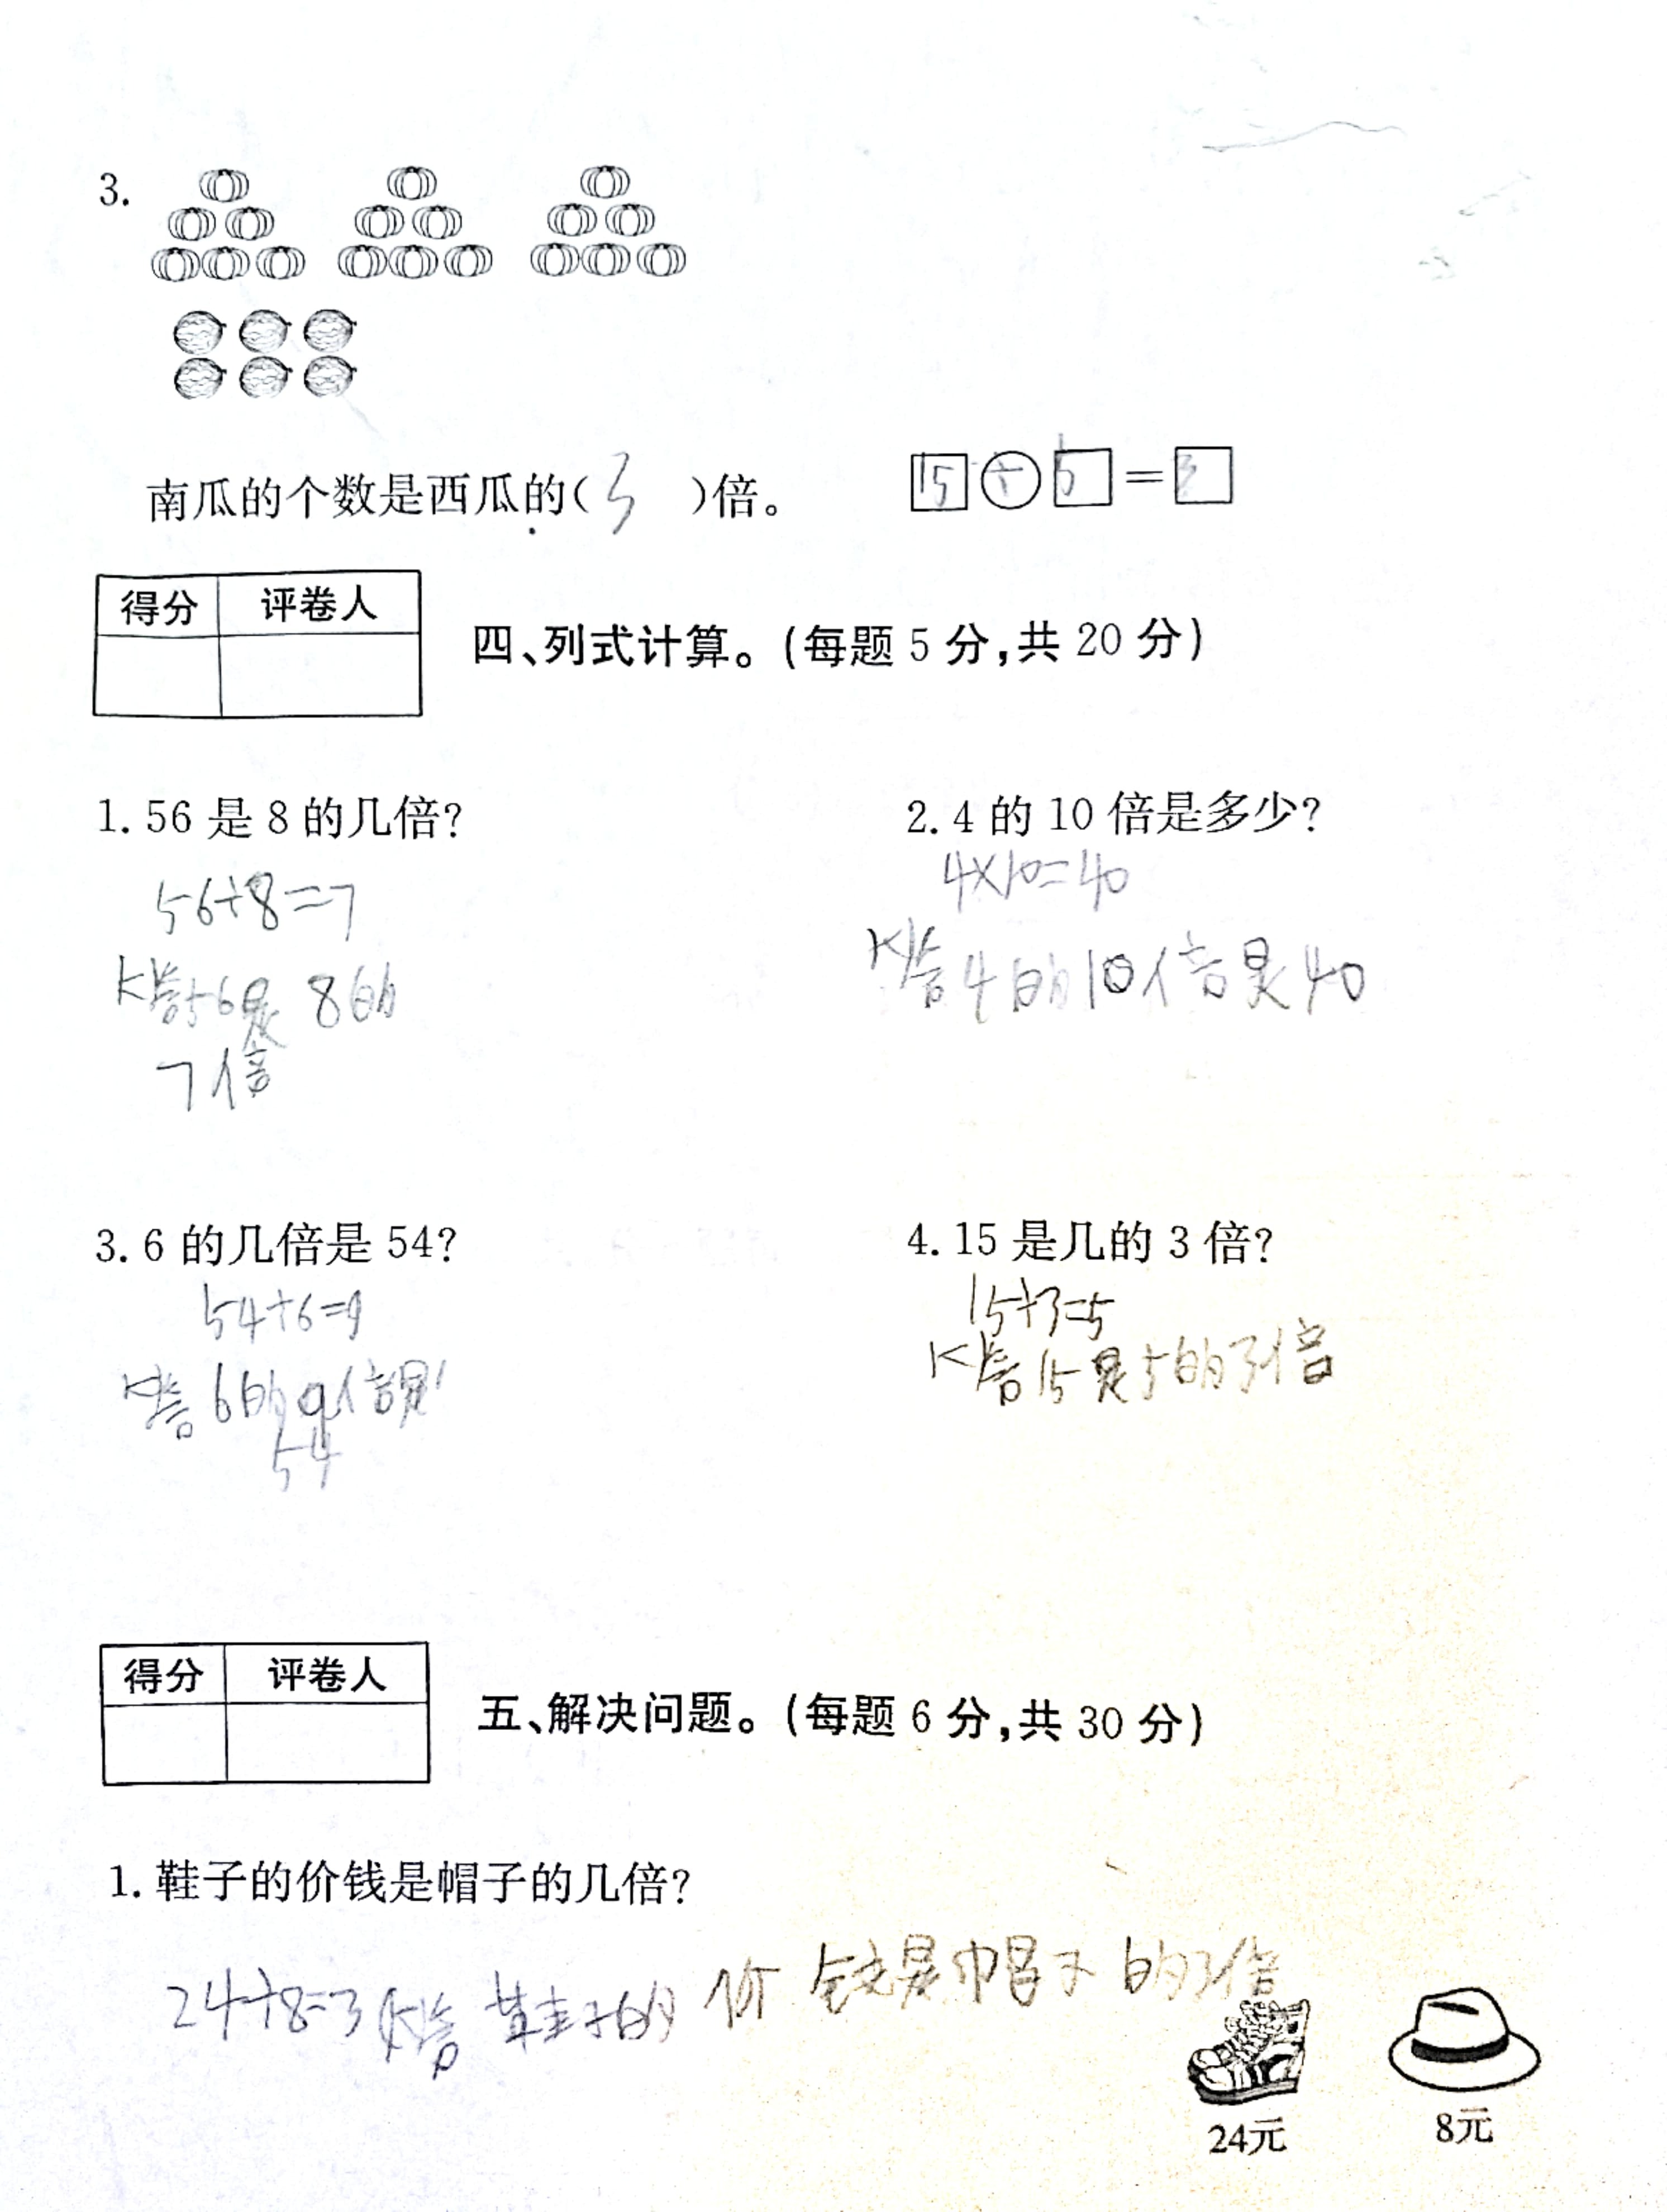 3.
南瓜的个数是西瓜的(3)倍。 15÷5=3
得分 评卷人
四、列式计算。(每题5分,共20分)
1. 56是8的几倍?
56÷8=7
答56是8的
7倍
2. 4的10倍是多少?
4×10=40
答4的10倍是40
3. 6的几倍是54?
54÷6=9
答6的9倍是
54
4. 15是几的3倍?
15÷3=5
答15是5的3倍
得分 评卷人
五、解决问题。(每题6分,共30分)
1. 鞋子的价钱是帽子的几倍?
24÷8=3 答鞋子的价钱是帽子的3倍
24元 8元